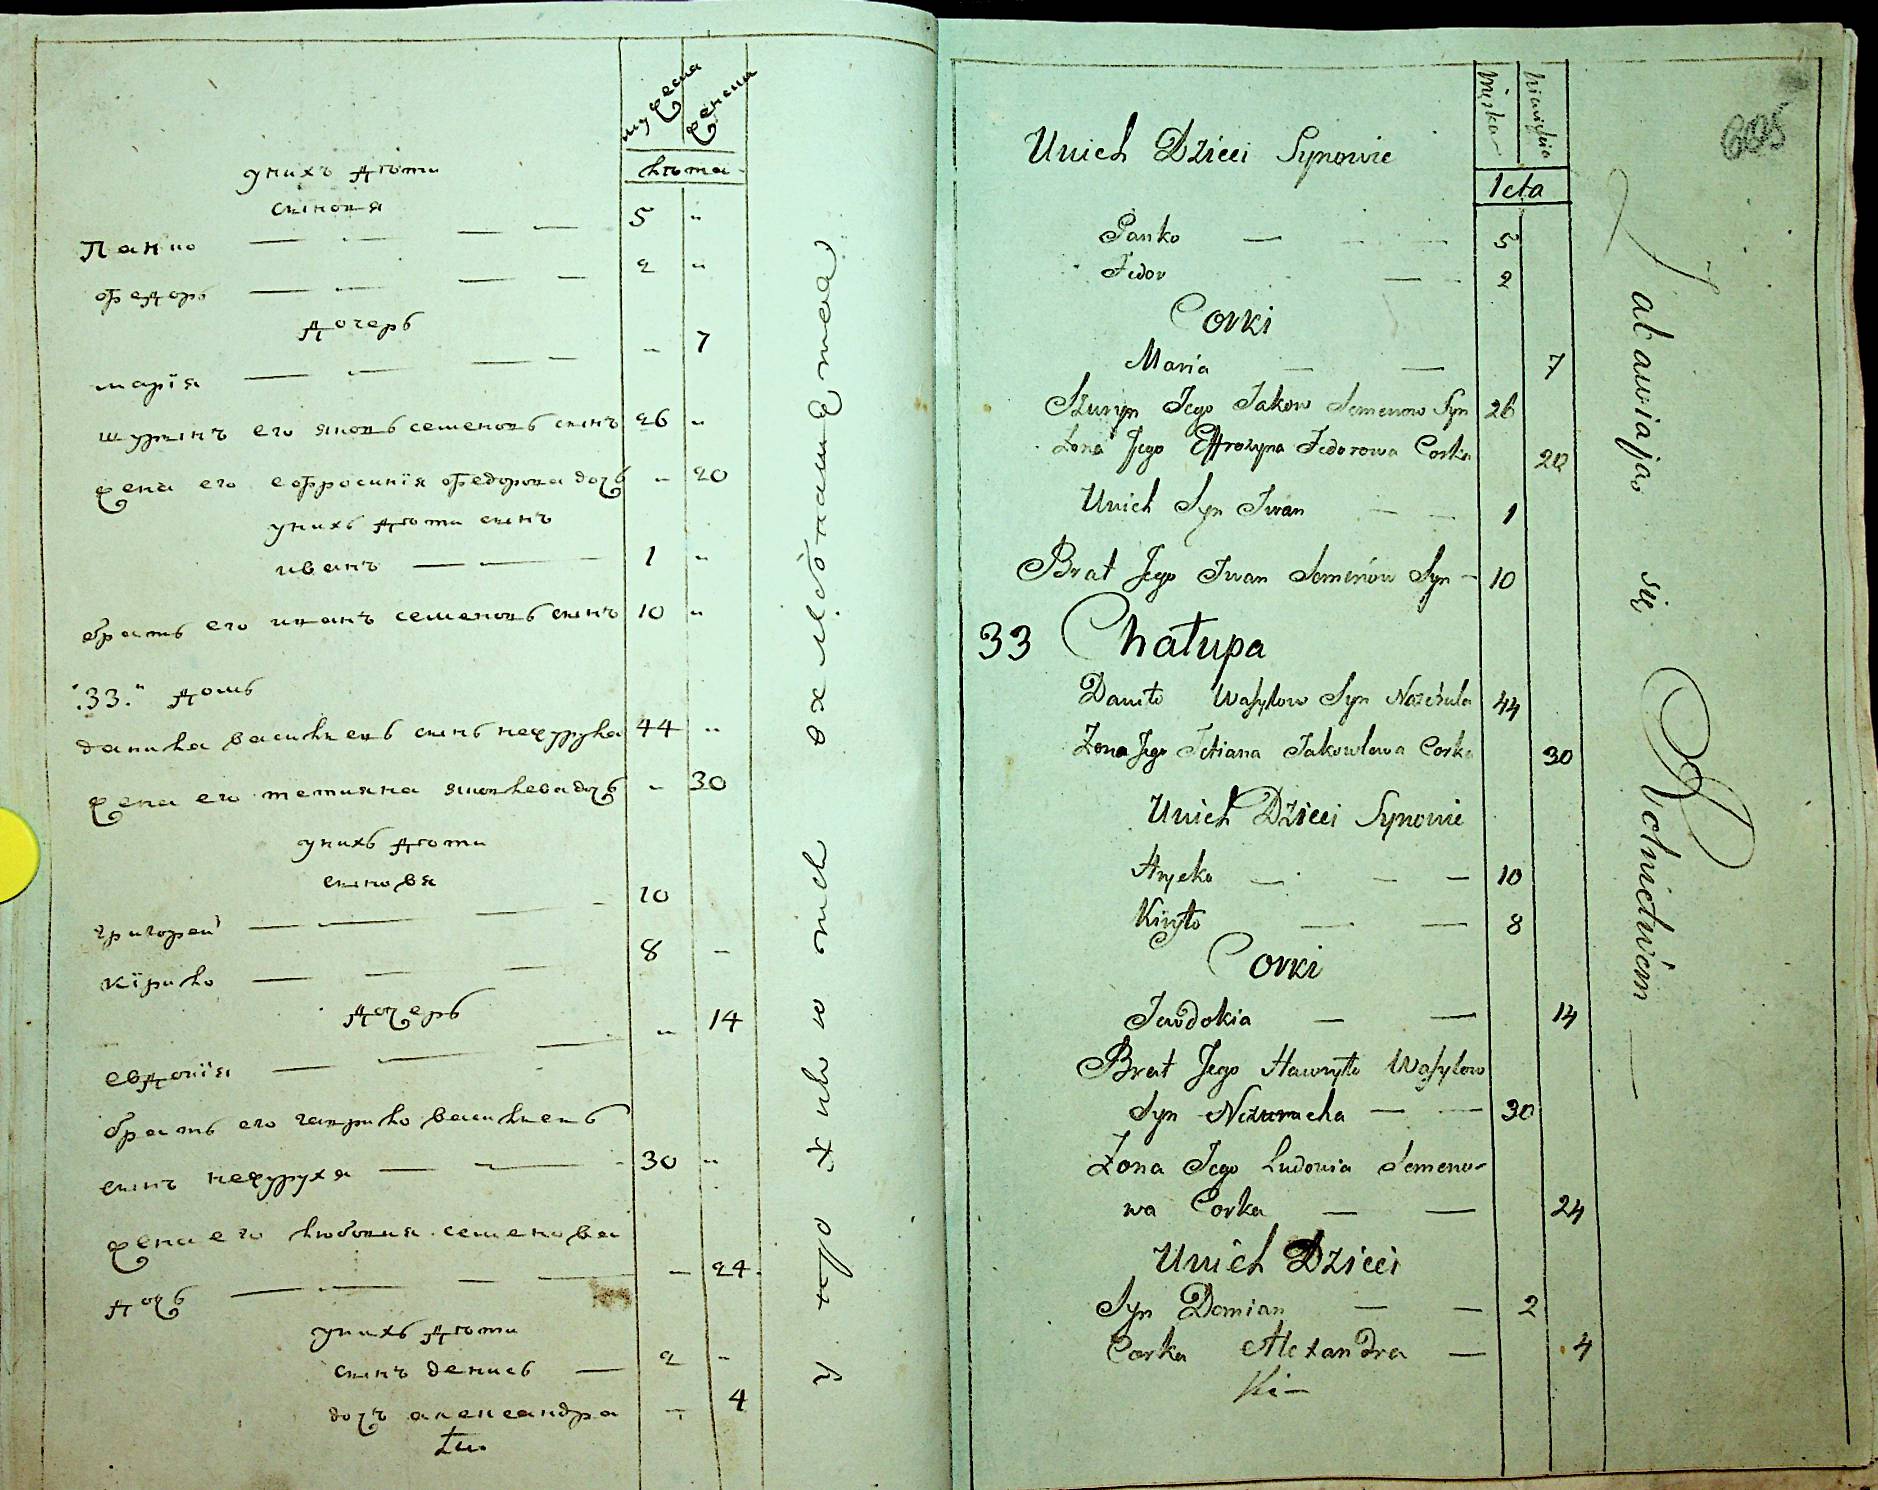 мужеска
женска
лѣта
унихъ дѣти
синовя
Панко 5 "
федоръ 2 "
дочеръ
марїя " 7
шуринъ его яковъ семеновъ синъ 26 "
жена его ефросинїя федорова дочъ " 20
унихъ дѣти синъ
иванъ 1 "
братъ его иванъ семеновъ синъ 10 "
"33." домъ
данила василиевъ синъ нечуруха 44 "
жена его тетияна яковлева дочъ " 30
унихъ дѣти
синовя
григорей 10
кїрило 8 "
дочеръ
евдокїя " 14
братъ его гаврило василиевъ
синъ нечурухя 30 "
жена его любовия семенова
дочъ " 24
унихъ дѣти
синъ денисъ 2 "
дочъ александра " 4
Męska
niewieścia
lata
605
Unich Dzieci Synowie
Panko 5
Fedor 2
Corki
Maria 7
Szuryn Jego Jakow Semenow Syn 26
Zona Jego Effrozyna Fedorowa Corka 20
Unich Syn Iwan 1
Brat Jego Iwan Semenow Syn 10
33 Chałupa
Daniło Wasylow Syn 44
Zona Jego Tetiana Jakowlowa Corka 30
Unich Dzieci Synowie
Hryćko 10
Kiryło 8
Corki
Jewdokia 14
Brat Jego Hawryło Wasylow
Syn 30
Zona Jego Ludowia Semeno-
wa Corka 24
Unich Dzieci
Syn Demian 2
Corka Alexandra 4
Ki-
Zabawiają się Rolnictwem